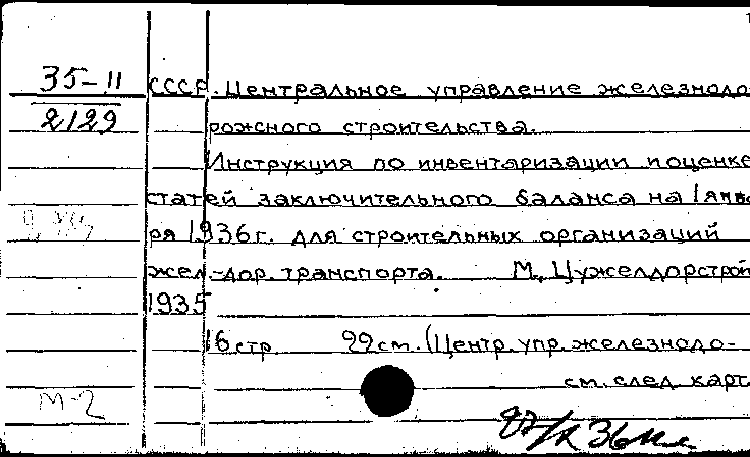 35-II СССР. Центральное управление железнодо
2129 рожного строительства.
Инструкция по инвентаризации и оценке
статей заключительного баланса на 1 янва
ря 1936 г. для строительных организаций
жел-дор. транспорта. М., Цужелдорстрой
1935
16 стр. 22 см. (Центр. упр. железнодо-
см. след. карт
М-2